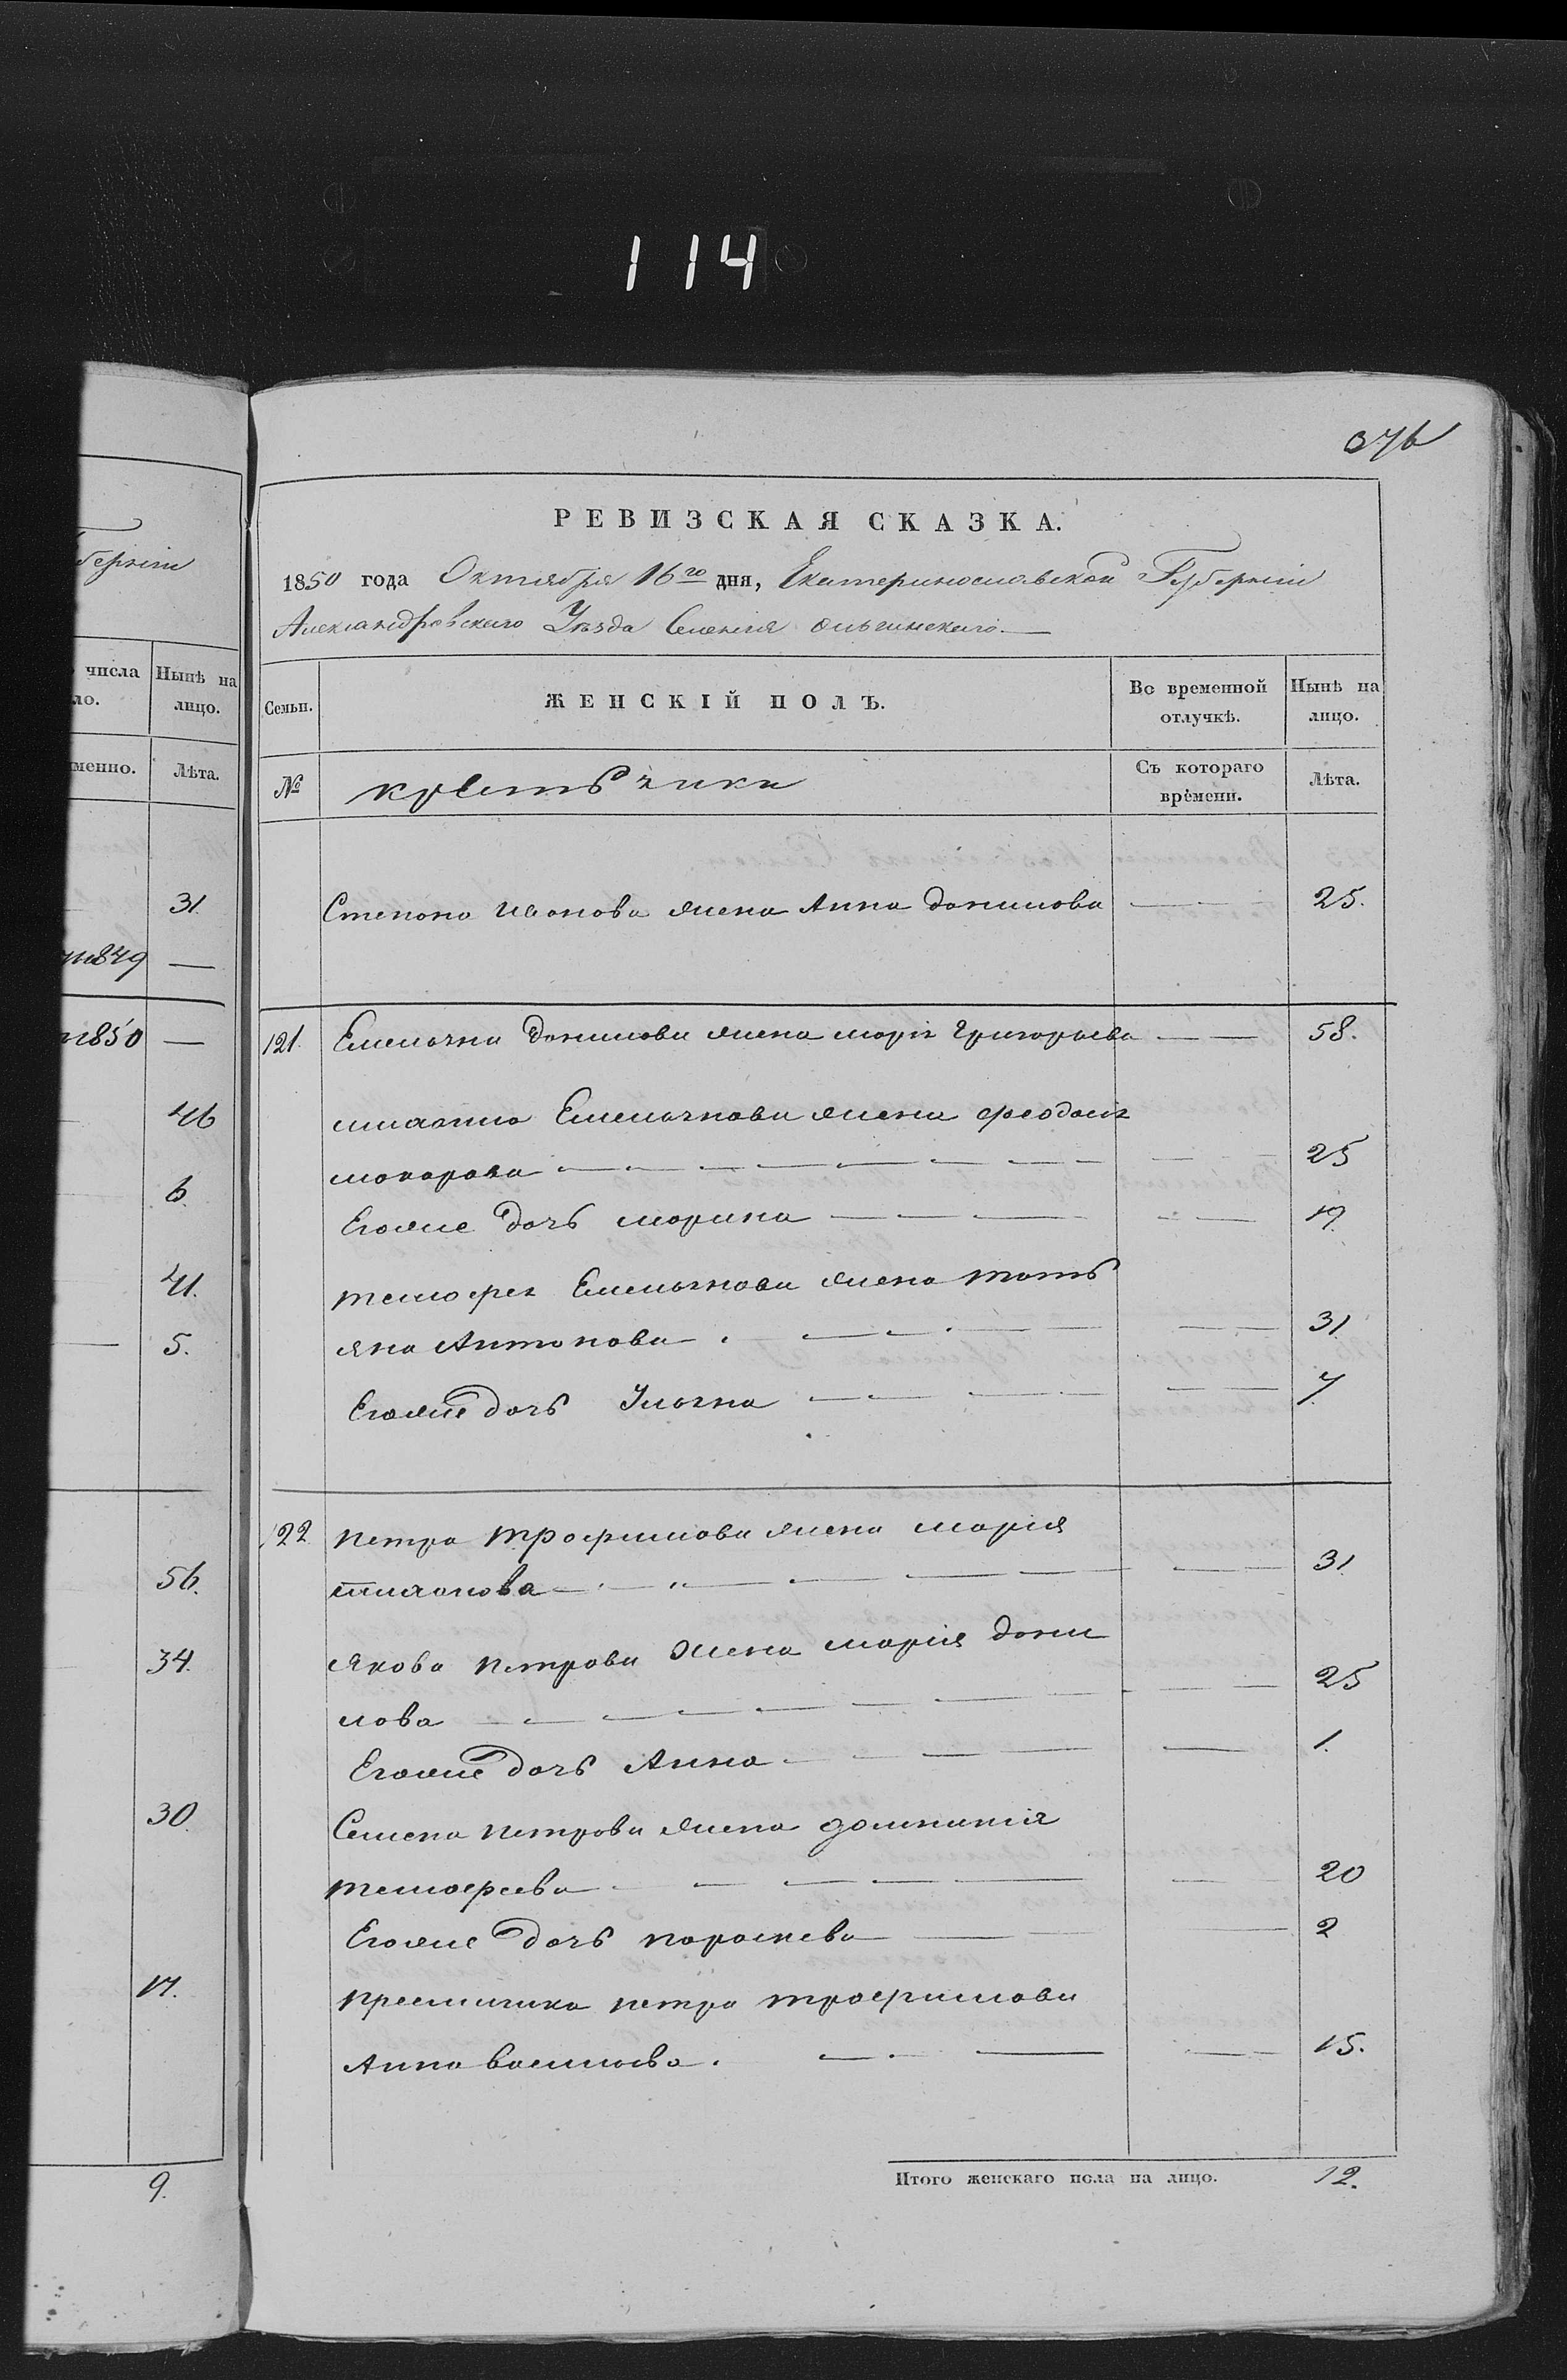 114
376
берніи
РЕВИЗСКАЯ СКАЗКА.
1850 года Октября 16го дня, Екатеринославской Губерніи
Александровскаго Уѣзда Селенія Ольгинскаго
числа
ло.
Нынѣ на
лицо.
менно.
Лѣта.
Семьи.
ЖЕНСКІЙ ПОЛЪ.
Во временной
отлучкѣ.
Нынѣ на
лицо.
№
Съ котораго
времени.
Лѣта.
31
1849 —
1850 —
46
6.
41.
5.
56.
34.
30.
17.
9.
Степана Иванова жена Анна данилова — 25.
121. Емельяна Данилова жена марія Григорьева — 58.
Емельянова жена феодосія
макарова — 25
Егоже дочь марина — 17.
тимофея Емельянова жена тать
яна Антонова — 31
Егоже дочь Ульяна — 7.
122 петра трофимова жена марія
31
Якова петрова жена марія дани
лова — 25
Егоже дочь Анна — 1.
Семена петрова жена домникія
тимофеева — 20
Егоже дочь параскева — 2
петра трофимова
Анна васильева. — 15.
Итого женскаго пола на лицо. 12.